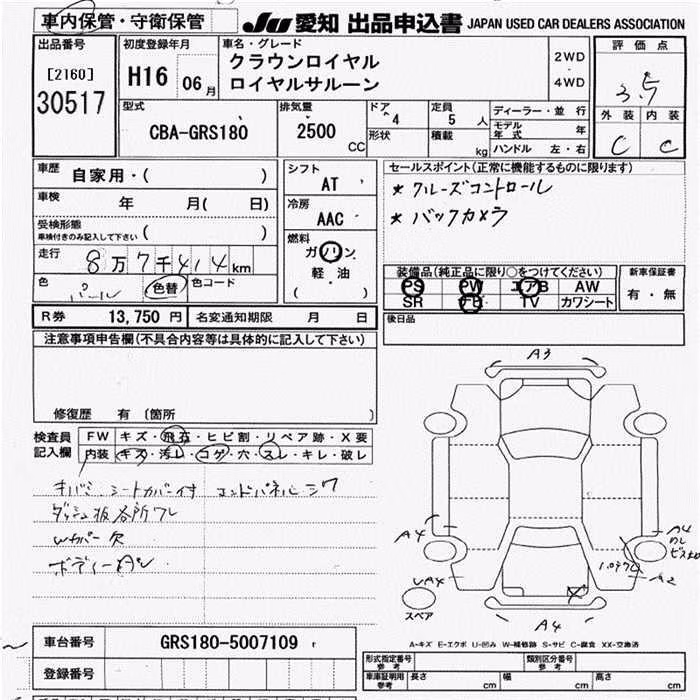 車内保管・守衛保管
JU 愛知 出品申込書 JAPAN USED CAR DEALERS ASSOCIATION
出品番号
[2160]
30517
初度登録年月
H16 06月
車名・グレード
クラウンロイヤル
ロイヤルサルーン
2WD
・
4WD
評価点
3.5
外装 内装
C C
型式
CBA-GRS180
排気量
2500
CC
ドア
4
形状
定員
5 人
積載
kg
ディーラー・並行
モデル
年式 年
ハンドル 左・右
車歴
自家用・( )
車検
年 月( 日)
受検形態
車検付きのみ記入して下さい ( )
走行
8万7千414km
色
パール
色替
色コード
シフト
AT
冷房
AAC
燃料
ガソリン
軽・油
( )
セールスポイント(正常に機能するものに限ります)
* クルーズコントロール
* バックカメラ
装備品(純正品に限り○をつけてください)
PS PW エアB AW
SR ナビ TV カワシート
新車保証書
有・無
後日品
R券 13,750 円 名変通知期限 月 日
注意事項申告欄(不具合内容等は具体的に記入して下さい)
修復歴 有 〔箇所 〕
検査員
記入欄
FW キズ・飛石・ヒビ割・リペア跡・X要
内装 キズ・汚レ・コゲ・穴・スレ・キレ・破レ
キバミ シートカバー付 エンドパネルシワ
ダッシュ板各所ワレ
Wカバー欠
A3
A4
UA4
A4
A2
A4
スペア
A-キズ E-エクボ U-凹み W-補修跡 S-サビ C-腐食 XX-交換済
車台番号
GRS180-5007109
登録番号
形式指定番号
参考
類別区分番号
参考
車庫証明用
参考
長さ cm
幅 cm
高さ cm